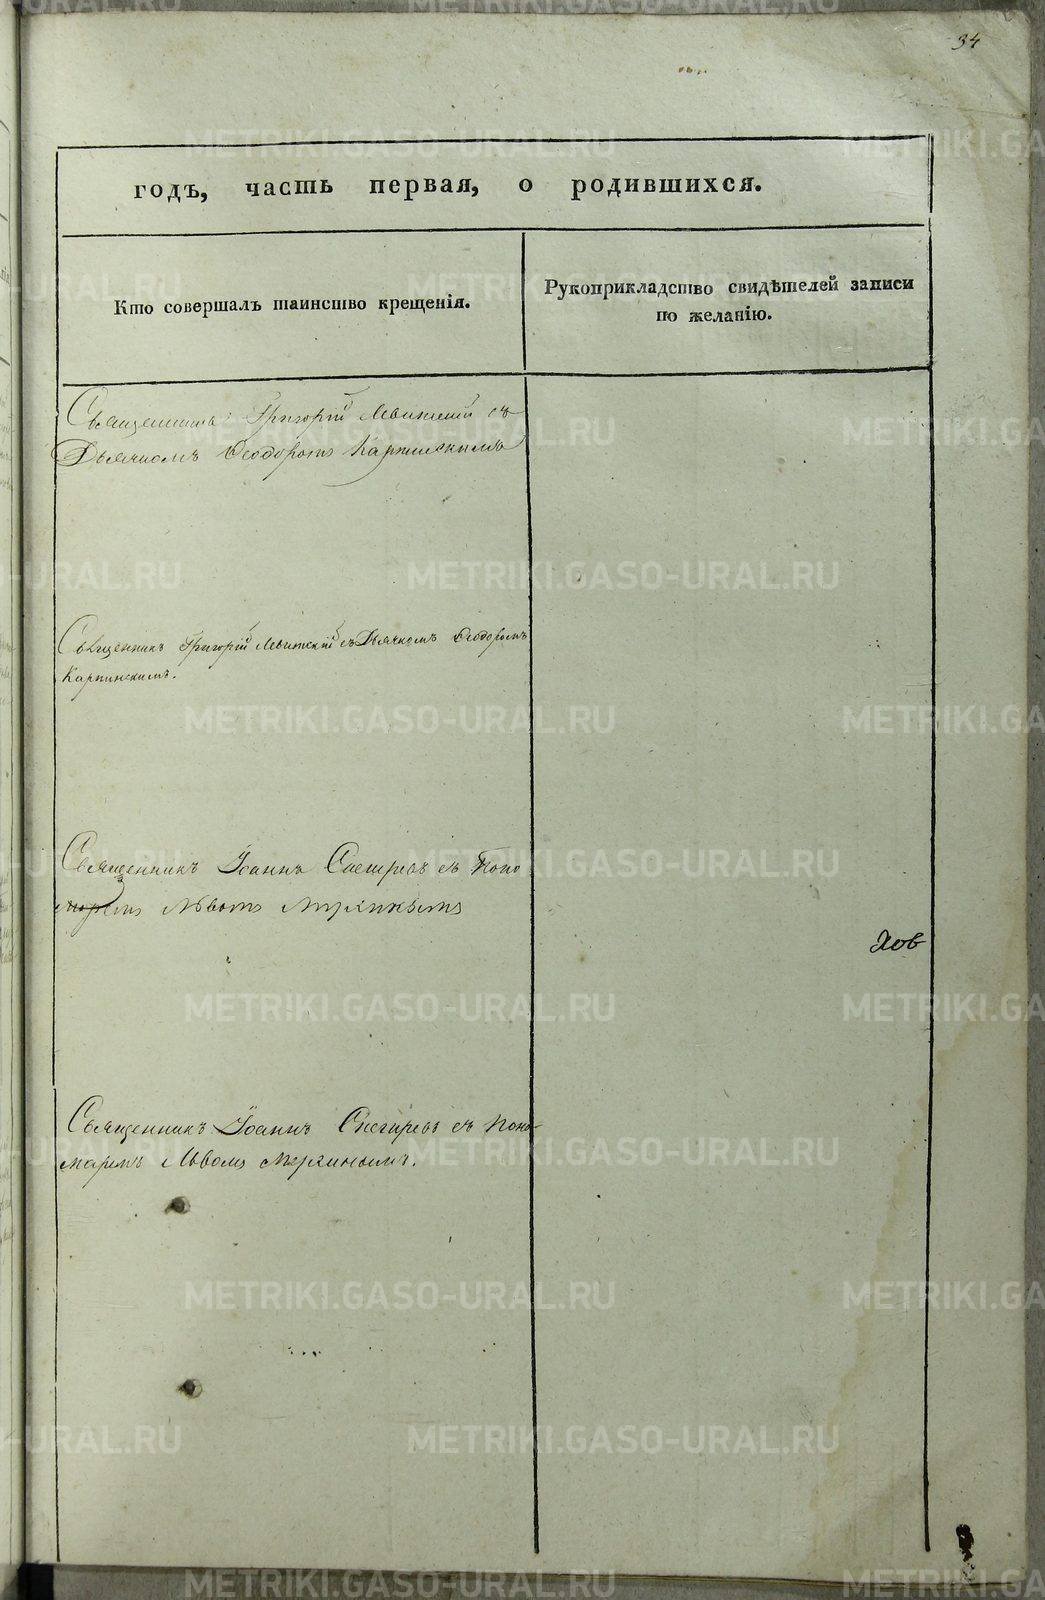 34
годъ, часть первая, о родившихся.
Кто совершалъ таинство крещенія.
Рукоприкладство свидѣтелей записи
по желанію.
Священникъ Григорій Левитскій съ
Дьячкомъ Ѳеодоромъ Карпинскимъ
Священникъ Григорій Левитскій съ Дьячкомъ Ѳеодоромъ
Карпинскимъ.
Священникъ Іоаннъ съ Поно
Львомъ
Священникъ Іоаннъ Снегиревъ съ Поно-
маремъ Львомъ
METRIKI.GASO-URAL.RU